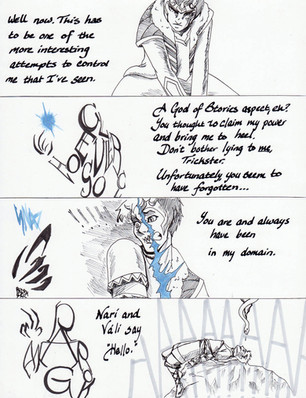 Well now. This has
to be one of the
more interesting
attempts to control
me that I've seen.
A God of Stories aspect, eh?
You thought to claim my power
and bring me to heel.
Don't bother lying to me,
Trickster.
Unfortunately you seem to
have forgotten...
You are and always
have been
in my domain.
Nari and
Váli say
"Hello."